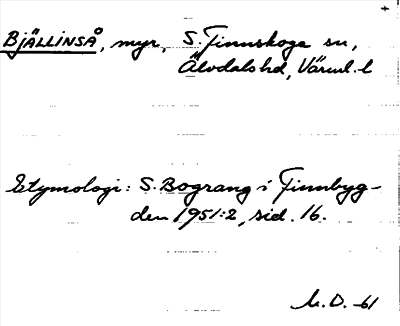 BJÄLLINSÅ, myr, S. Finnskoga sn,
Älvdals hd, Värml. l
Etymologi: S. Bograng i Finnbyg-
den 1951:2, sid. 16.
M.D. -61